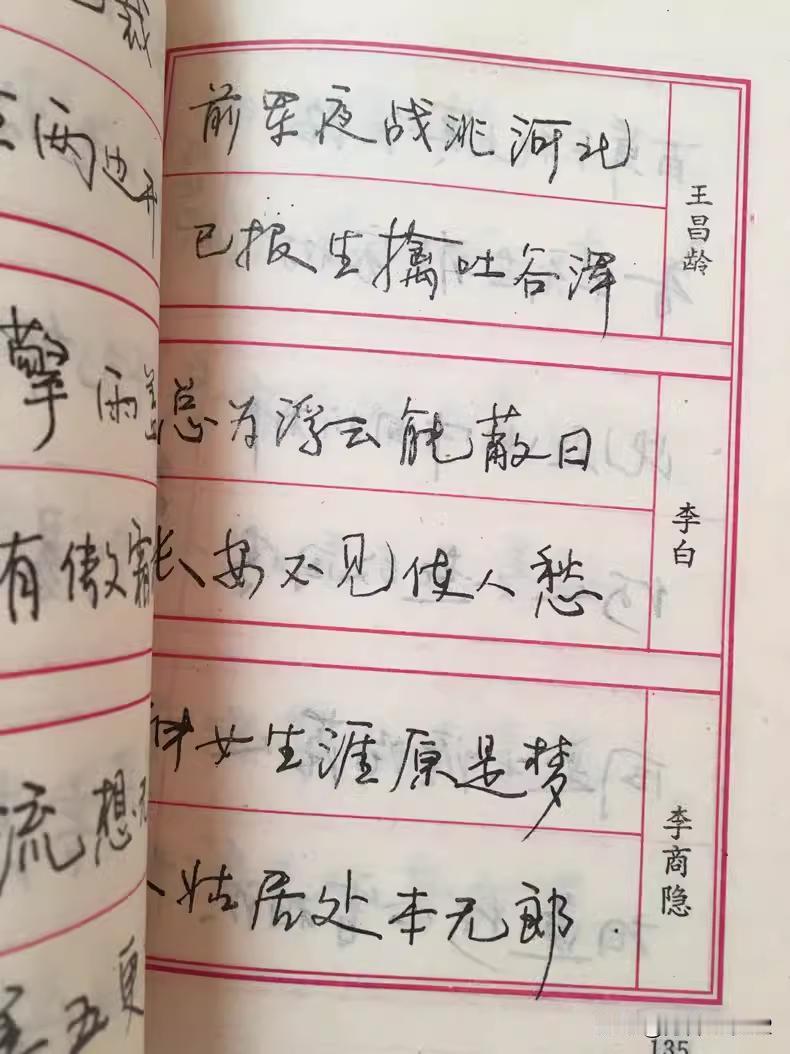 裁
两边开
擎雨盖
有傲霜
流想
五更
前军夜战洮河北
已报生擒吐谷浑
王昌龄
总为浮云能蔽日
长安不见使人愁
李白
女生涯原是梦
姑居处本无郎
李商隐
135